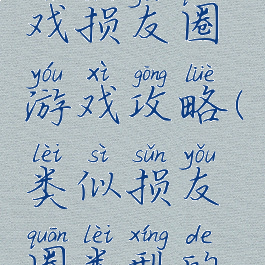 戏损友圈
yóu xì gōng lüè
游戏攻略(
lèi sì sǔn yǒu
类似损友
quān lèi xíng de
圈类型的